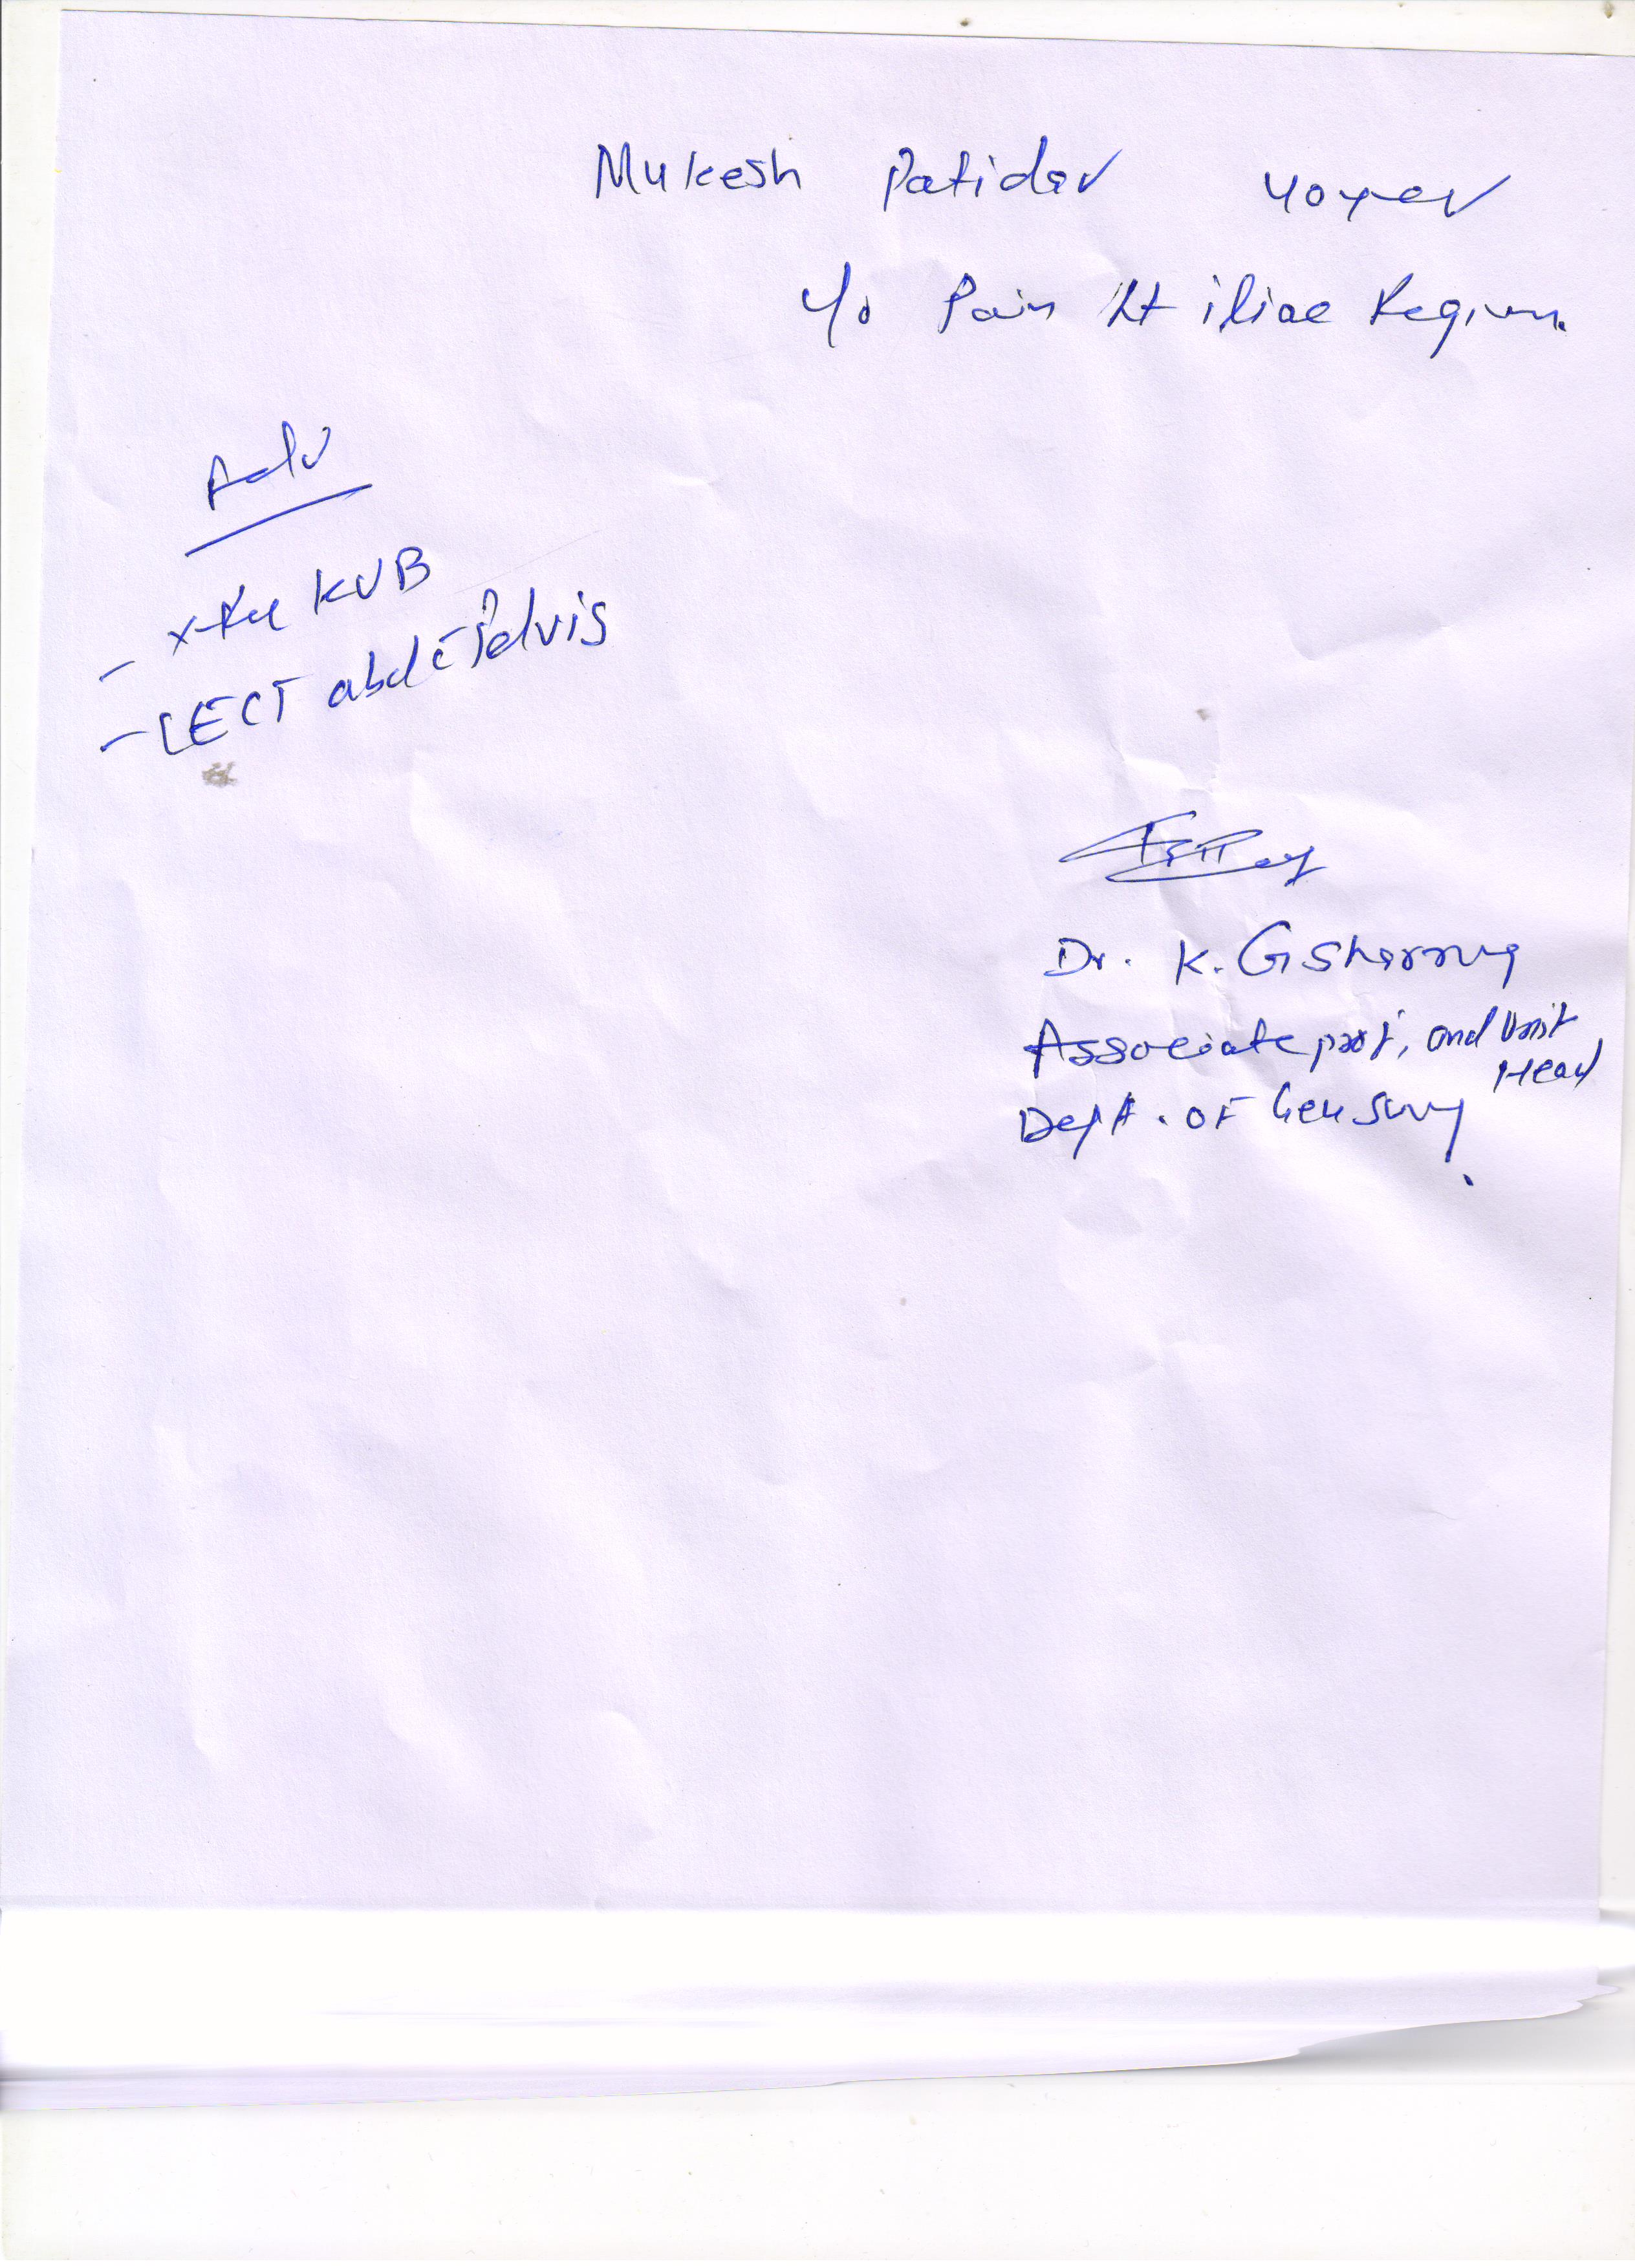 Mukesh Patidar 40 year
c/o Pain Rt iliac Region.
Adv
- X-Ray KUB
- CECT abd c̄ Pelvis
Dr. K. G Sharma
Associate prof, and Unit
Head
Dept. of Gen Surg.